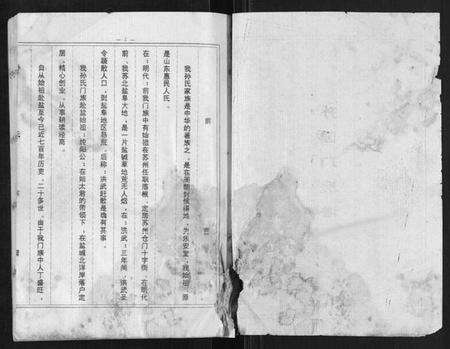 前
我孙氏家族是中华的著族之 是在周朝封侯得地 为乐安堂 我始祖 原
是山东惠民人氏
在 明代 前我门族中有始祖在苏州任职落根 定居苏州仓门十字街 在明代
前 我苏北盐阜大地 是一片盐碱草地荒无人烟 在 洪武 三年间 洪武圣
令疏散人口 到盐阜地区垦荒 后称 洪武赶散是确有其事
我孙氏门族赴盐始祖 公 在始太君的带领下 在盐城北洋岸落户定
居 精心创业 从事耕读经商
自从始祖赴盐至今已近七百年历史 二十多世 由于我门族中人丁盛旺